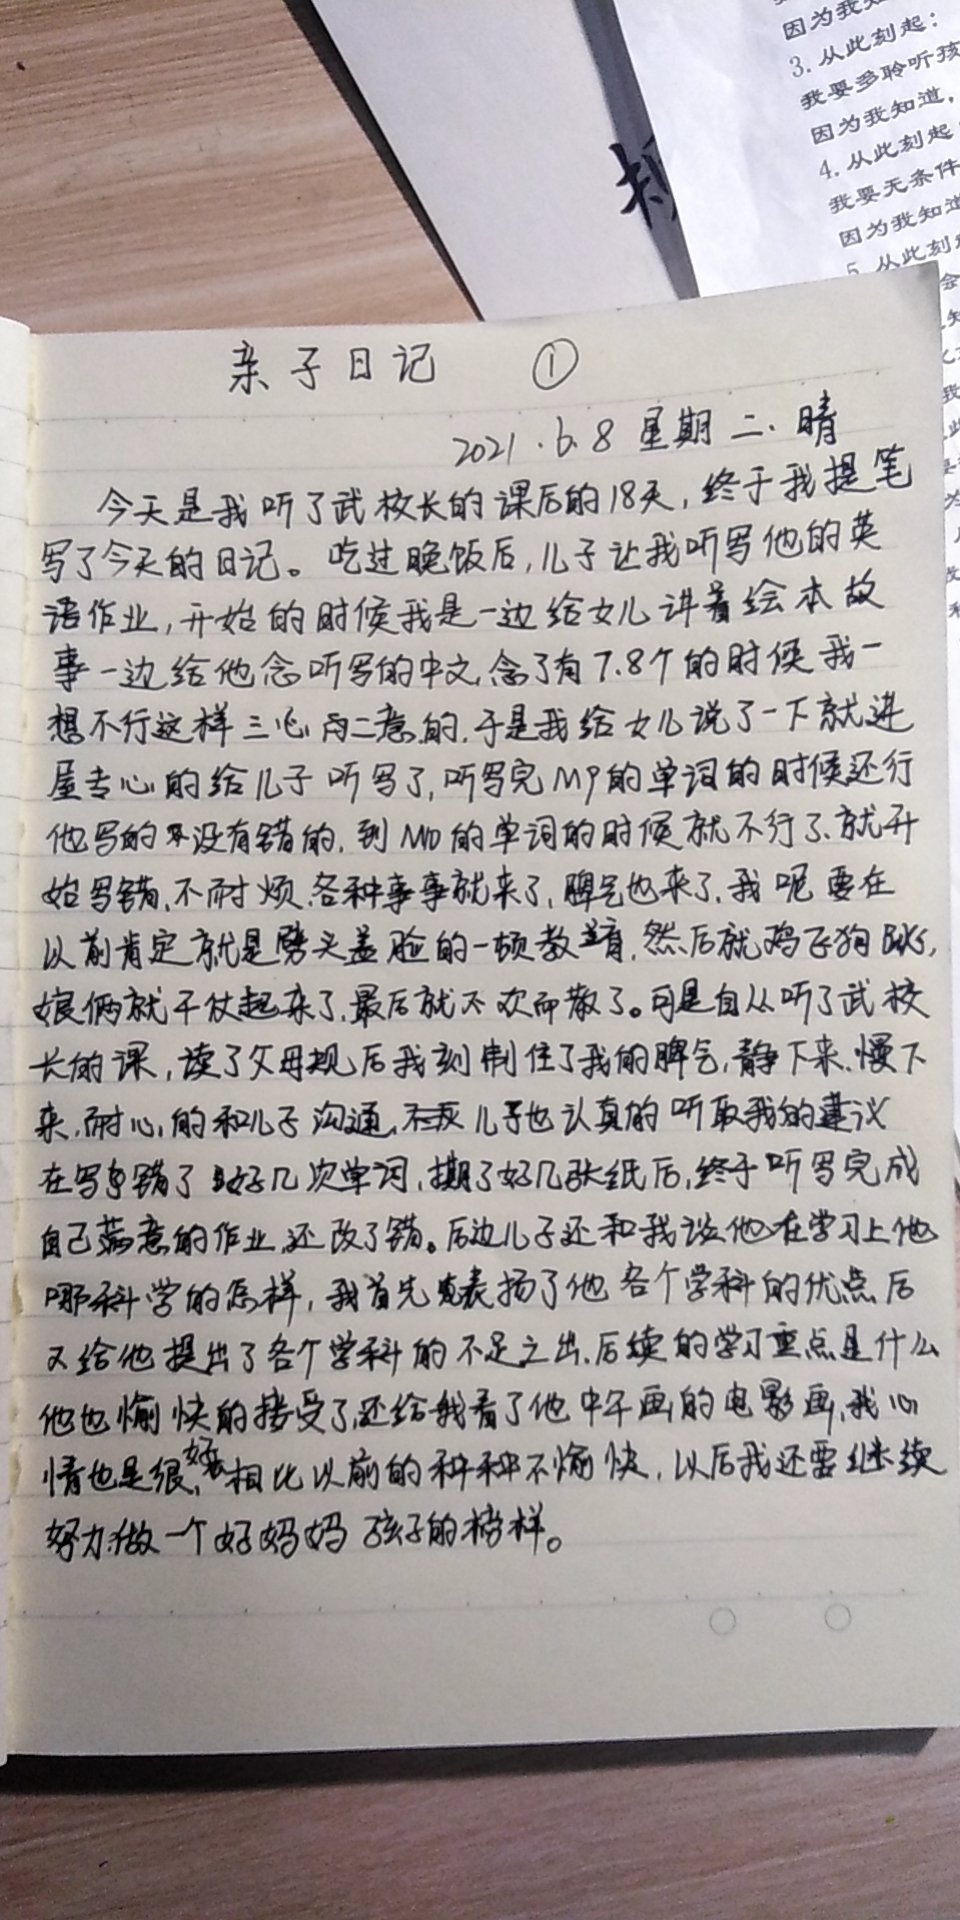 因为我知
3. 从此刻起：
我要多聆听孩
因为我知道，
4. 从此刻起
我要无条件
因为我知道
5. 从此刻
亲子日记 ①
2021.6.8 星期二. 晴
今天是我听了武校长的课后的18天，终于我提笔
写了今天的日记。吃过晚饭后，儿子让我听写他的英
语作业，开始的时候我是一边给女儿讲着绘本故
事一边给他念听写的中文，念了有7.8个的时候我一
想不行这样三心两二意的，于是我给女儿说了一下就进
屋专心的给儿子听写了，听写完M9的单词的时候还行
他写的没有错的，到M10的单词的时候就不行了、就开
始写错，不耐烦，各种事事就来了，脾气也来了，我呢要在
以前肯定就是劈头盖脸的一顿教育，然后就鸡飞狗跳，
娘俩就干仗起来了，最后就不欢而散了。可是自从听了武校
长的课，读了父母规后我刻制住了我的脾气，静下来.慢下
来.耐心的和儿子沟通，儿子也认真的听取我的建议
在写错了好几次单词，撕了好几张纸后，终于听写完成
自己满意的作业，还改了错。后边儿子还和我谈他在学习上他
哪科学的怎样，我首先表扬了他各个学科的优点后
又给他提出了各个学科的不足之出，后续的学习重点是什么
他也愉快的接受了，还给我看了他中午画的电影画，我心
情也是很好，相比以前的种种不愉快，以后我还要继续
努力.做一个好妈妈 孩子的榜样。